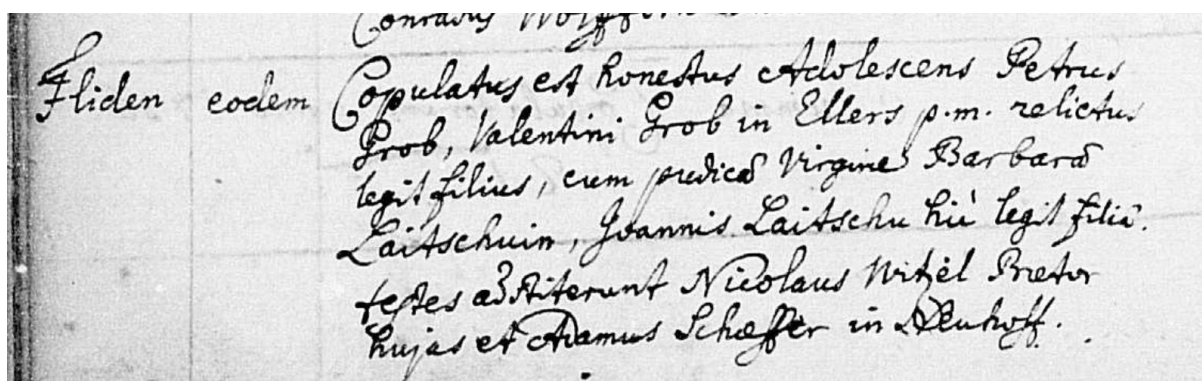 Conradus
Fliden eodem Copulatus est honestus Adolescens Petrus
Grob, Valentini Grob in Ellers p.m. relictus
legit filius, cum pudica Virgine Barbara
Laitschuin, Joannis Laitschu hic legit filia.
testes adstiterunt Nicolaus Witzel Prætor
hujas et Adamus Schæffer in Neuhoff.